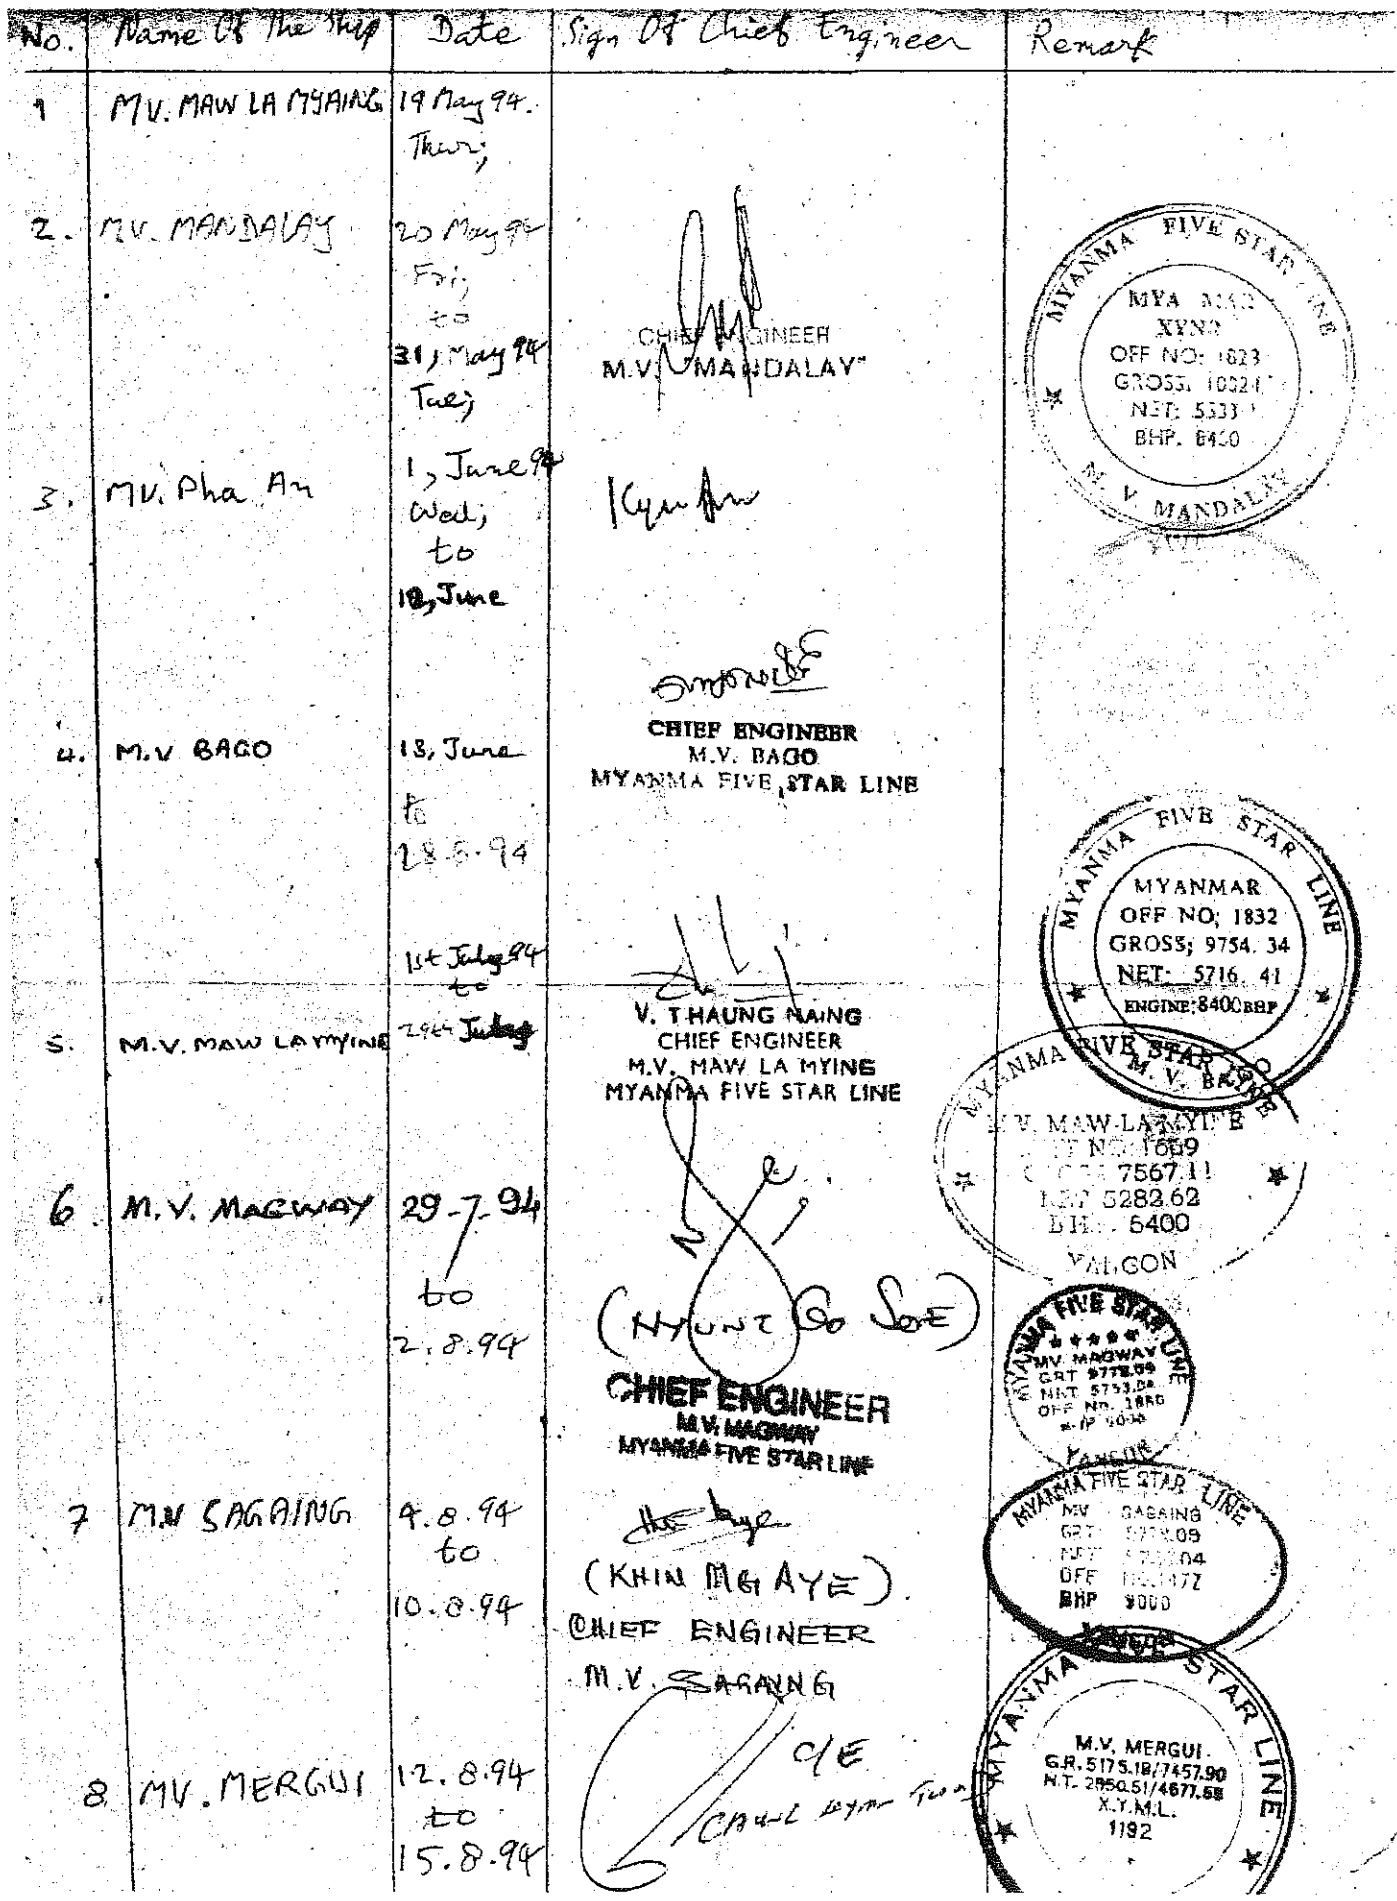 No. Name Of The Ship Date Sign Of Chief Engineer Remark
1 MV. MAW LA MYAING 19 May 94.
Thur;
2. MV. MANDALAY 20 May 94
Fri;
to
31, May 94
Tue;
CHIEF ENGINEER
M.V. "MANDALAY"
MYANMA FIVE STAR LINE
XYNR
OFF NO: 1823
GROSS: 10024
NET: 5333
BHP. 8400
M. V. MANDALAY
3. MV. Pha An 1, June 94
Wed;
to
12, June
4. M.V BAGO 13, June
to
28.6.94
CHIEF ENGINEER
M.V. BAGO
MYANMA FIVE STAR LINE
MYANMA FIVE STAR LINE
MYANMAR
OFF NO; 1832
GROSS; 9754. 34
NET: 5716. 41
ENGINE; 8400 BHP
M. V. BAGO
5. M.V. MAW LAMYINE 1st July 94
to
29th July
V. THAUNG NAING
CHIEF ENGINEER
M.V. MAW LA MYING
MYANMA FIVE STAR LINE
MYANMA FIVE STAR LINE
M.V. MAW-LA-MYINE
7567.11
5282.62
6400
YANGON
6. M.V. MAGWAY 29-7-94
to
2.8.94
(NYUNT GO SOE)
CHIEF ENGINEER
M.V. MAGWAY
MYANMA FIVE STAR LINE
MYANMA FIVE STAR LINE
MV. MAGWAY
GRT 9778.09
OFF NO. 1880
YANGON
7 M.V SAGAING 9.8.94
to
10.8.94
(KHIN MG AYE)
CHIEF ENGINEER
M.V. SAGAING
MYANMA FIVE STAR LINE
MV SAGAING
GRT
OFF
BHP 9000
8. MV. MERGUI 12.8.94
to
15.8.94
C/E
MYANMA FIVE STAR LINE
M.V. MERGUI.
G.R. 5175.18/7457.90
N.T. 2950.51/4677.68
X.Y.M.L.
1192